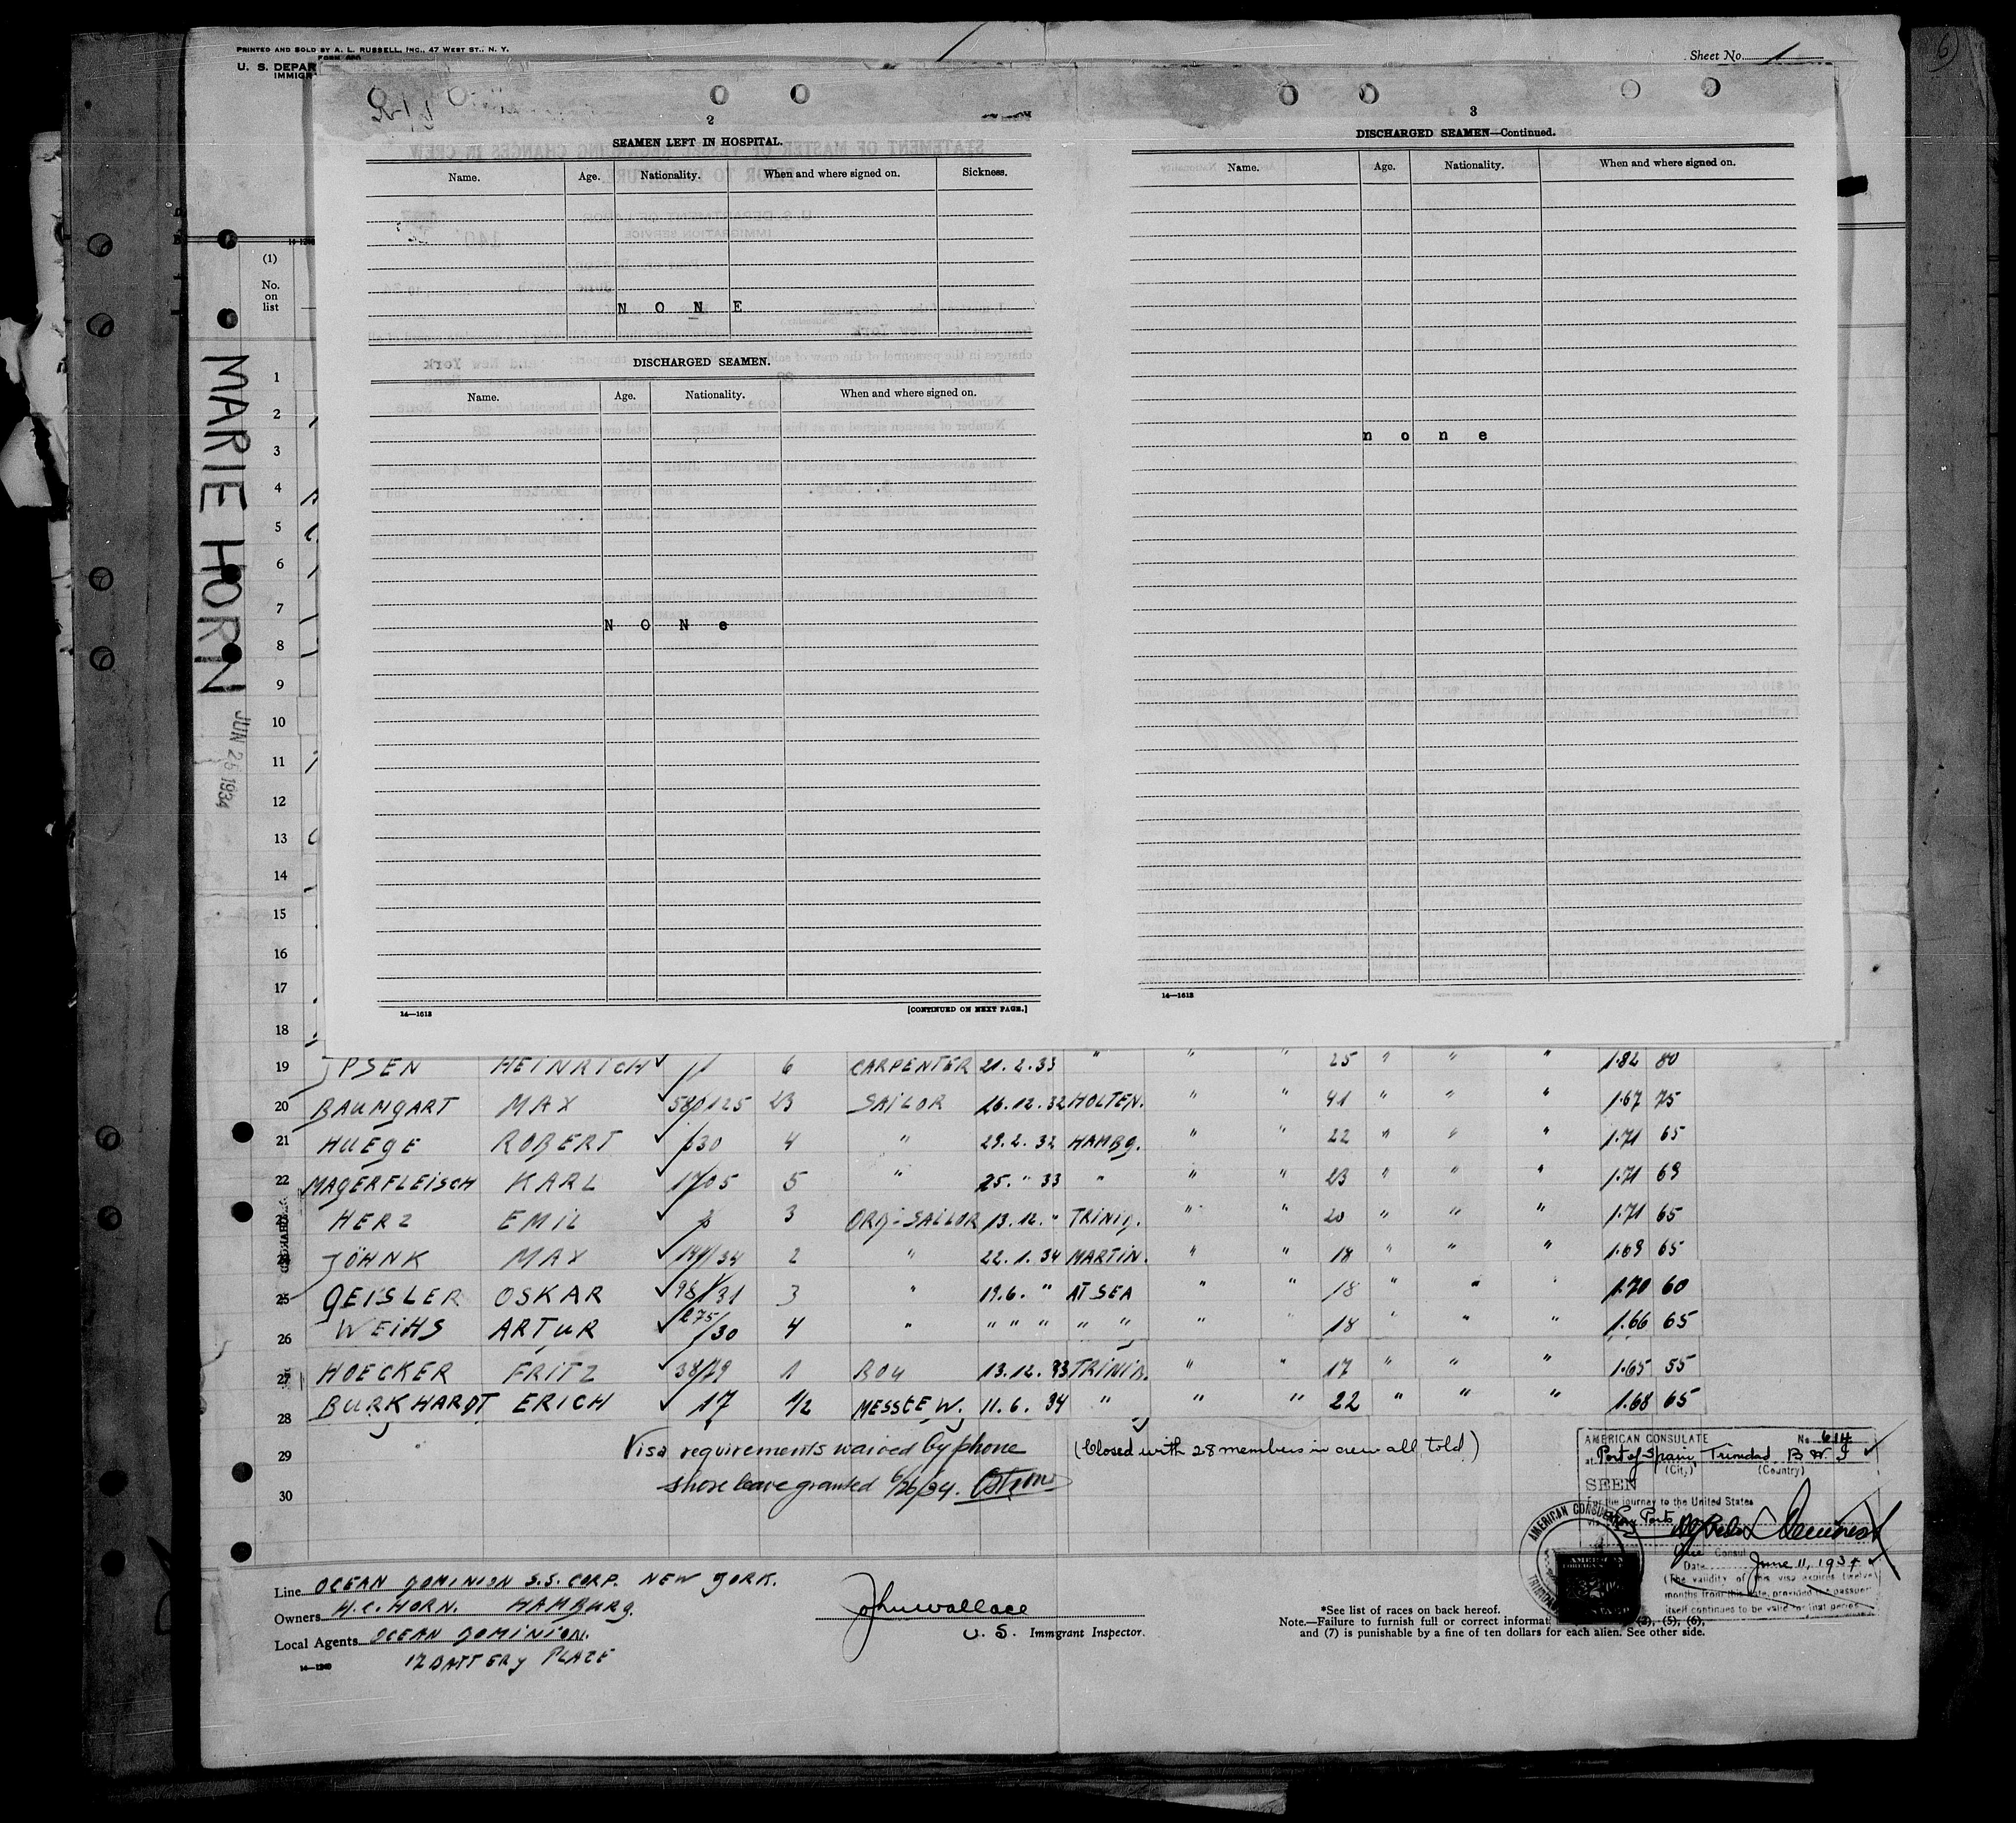 PRINTED AND SOLD BY A. L. RUSSELL, INC., 47 WEST ST., N. Y.
U. S. DEPAR
IMMIGR
Sheet No. 1
6
2
SEAMEN LEFT IN HOSPITAL.
Name. Age. Nationality. When and where signed on. Sickness.
N O N E
DISCHARGED SEAMEN.
Name. Age. Nationality. When and where signed on.
N O N e
14—1613
[CONTINUED ON NEXT PAGE.]
3
DISCHARGED SEAMEN—Continued.
Name. Age. Nationality. When and where signed on.
n o n e
14—1613
MARIE HORN
JUN 26 1934
(1)
No.
on
list
1
2
3
4
5
6
7
8
9
10
11
12
13
14
15
16
17
18
19 JPSEN HEINRICH ✓ " 6 CARPENTER 21.2.33 " " " 25 " " " 1.82 80
20 BAUMGART MAX ✓ 23 SAILOR 16.12.32 HOLTEN. " " 41 " " " 1.67 75
21 HUEGE ROBERT ✓ 4 " 29.2.32 HAMBG. " " 22 " " " 1.71 65
22 MAGERFLEISCH KARL ✓ 5 " 25. " 33 " " " 23 " " 1.71 69
23 HERZ EMIL ✓ 3 ORD-SAILOR 13.12. " TRINID. " " 20 " " " 1.71 65
24 JÖHNK MAX ✓ 141/34 2 " 22.1.34 MARTIN. " " 18 " " " 1.69 65
25 GEISLER OSKAR ✓ 98/31 3 " 19.6. " AT SEA " " 18 " " " 1.70 60
26 WEIHS ARTUR ✓ 275/30 4 " " " " " " " " 18 " " " 1.66 65
27 HOECKER FRITZ ✓ 38/79 1 BOY 13.12.33 TRINID. " " 17 " " " 1.65 55
28 BURKHARDT ERICH ✓ 17 1/2 MESSTEW. 11.6.34 " " " 22 " " " 1.68 65
29 Visa requirements waived by phone (Closed with 28 members in crew all told)
30 shore leave granted 6/26/34.
AMERICAN CONSULATE No. 614
at Port of Spain, Trinidad B.W.I. ✓
(City) (Country)
SEEN
For the journey to the United States
Vice Consul
Date June 11, 1934 ✓
(The validity of this visa expires twelve
months from this date, provided the passport
itself continues to be valid for that period
AMERICAN CONSULATE
AMERICAN
FOREIGN SERVICE
Line OCEAN DOMINION S.S. CORP. NEW YORK.
Owners H.C. HORN. HAMBURG.
Local Agents OCEAN DOMINION.
17 BATTERY PLACE
14—1240
John Wallace
U. S. Immigrant Inspector.
*See list of races on back hereof.
Note.—Failure to furnish full or correct informat (3), (5), (6),
and (7) is punishable by a fine of ten dollars for each alien. See other side.